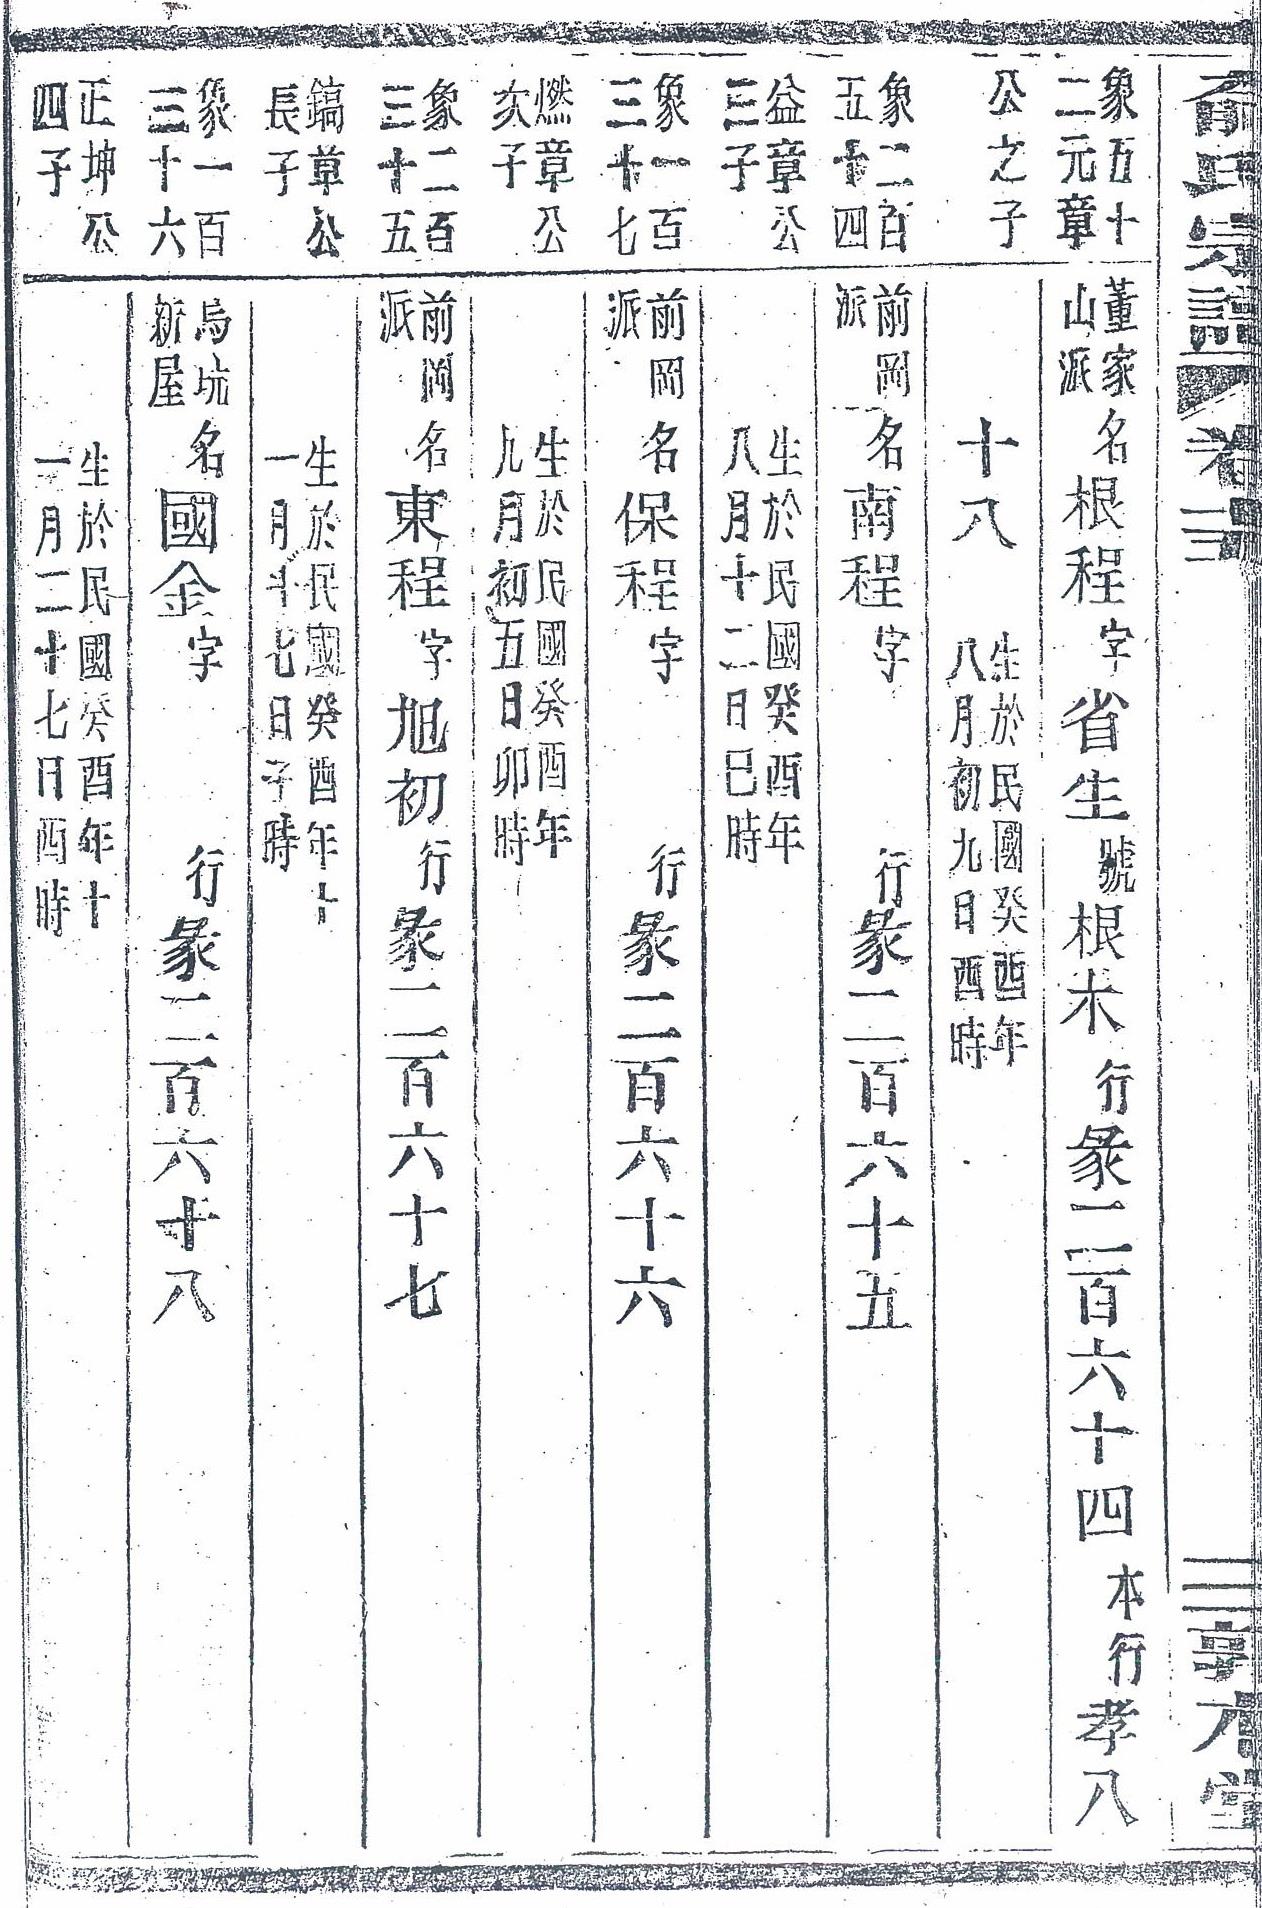 宗譜 卷二
象五十
二元章
董家
山派
名根程字省生號根木行彖二百六十四本行孝八
公之子
十八
生於民國癸酉年
八月初九日酉時
象二百
五十四
前岡
派
名南程字 行彖二百六十五
益章公
三子
生於民國癸酉年
八月十二日巳時
象一百
三十七
前岡
派
名保程字 行彖二百六十六
燃章公
次子
生於民國癸酉年
九月初五日卯時
象二百
三十五
前岡
派
名東程字旭初行彖二百六十七
鎬章公
長子
生於民國癸酉年十
一月十七日子時
象一百
三十六
烏坑
新屋
名國金字 行彖二百六十八
正坤公
四子
生於民國癸酉年十
一月二十七日酉時